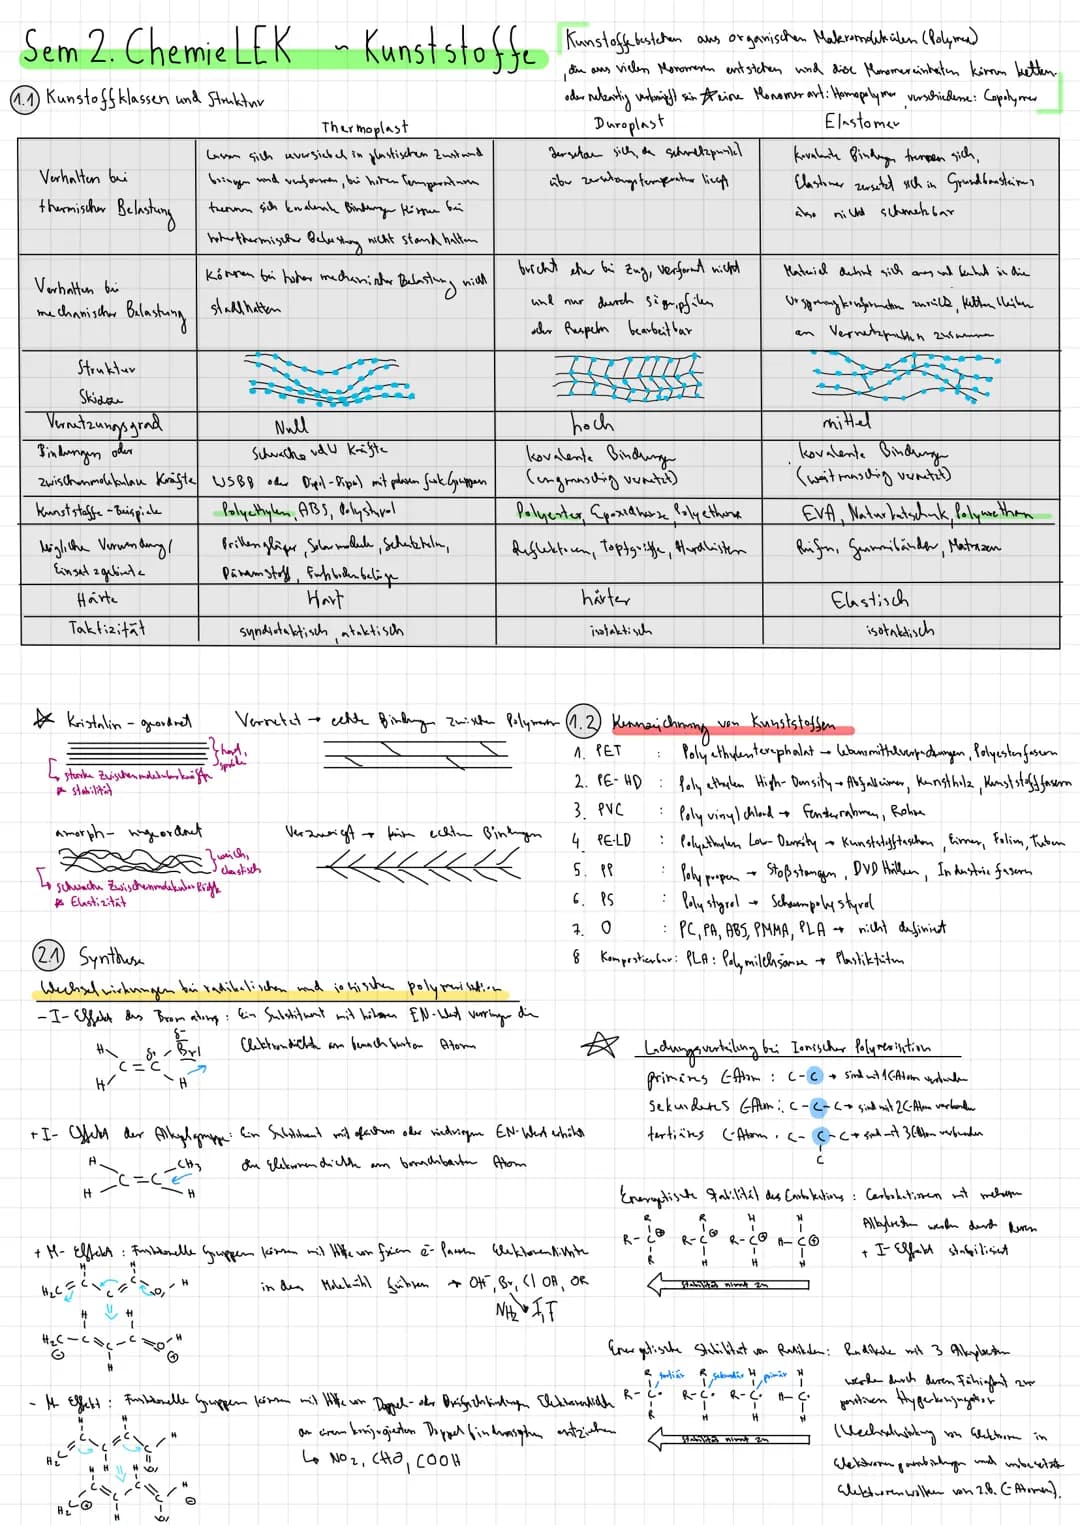 Sem 2. Chemie LEK ~ Kunststoffe
Kunststoffe bestehen aus organischen Makromolekülen (Polymere)
, die aus vielen Monomeren entstehen und diese Monomereinheiten können ketten-
oder netzartig verknüpft sein ☆ eine Monomerart: Homopolymer, verschiedene: Copolymer
1.1 Kunstoffklassen und Struktur
Thermoplast
Duroplast
Elastomer
Verhalten bei
thermischer Belastung
Lassen sich reversibel in plastischen Zustand
bringen und verformen, bei hohen Temperaturen
trennen sich kovalente Bindungen können bei
hoher thermischer Belastung nicht stand halten
Zersetzen sich, da schmelzpunkt
über zersetzungstemperatur liegt
Kovalente Bindungen trennen sich,
Elastomer zersetzt sich in Grundbausteine,
also nicht schmelzbar
Verhalten bei
mechanischer Belastung
können bei hoher mechanischer Belastung nicht
standhalten
bricht eher bei Zug, verformt nicht
und nur durch Sägen, feilen
oder Raspeln bearbeitbar
Material dehnt sich aus und kehrt in die
Ursprungskonformation zurück, Ketten bleiben
an Vernetzpunkten zusammen
Struktur
Skizze
Vernetzungsgrad
Null
hoch
mittel
Bindungen oder
zwischenmolekulare Kräfte
Schwache vdW Kräfte
WSBB oder Dipol-Dipol mit polaren funk. Gruppen
kovalente Bindung
(engmaschig vernetzt)
kovalente Bindung
(weitmaschig vernetzt)
Kunststoffe-Beispiele
Polyethylen, ABS, Polystyrol
Polyester, Epoxidharze, Polyethene
EVA, Naturkautschuk, Polyurethan
Mögliche Verwendung/
Einsatzgebiete
Brillengläser, Solarmodule, Schutzhelm,
Dämmstoff, Fußbodenbeläge
Reflektoren, Topfgriffe, Herdleisten
Reifen, Gummibänder, Matrazen
Härte
Hart
härter
Elastisch
Taktizität
syndiotaktisch, ataktisch
isotaktisch
isotaktisch
☆ Kristalin - geordnet
hart, spröde
starke Zwischenmolekularkräfte
☆ stabilität
Vernetzt → echte Bindung zwischen Polymeren
amorph - ungeordnet
weich, elastisch
schwache Zwischenmolekulare Kräfte
☆ Elastizität
Verzweigt → keine echten Bindungen
1.2 Kennzeichnung von Kunststoffen
1. PET : Polyethylenterephalat → Lebensmittelverpackungen, Polyesterfasern
2. PE-HD : Polyethylen High-Density → Abfalleimer, Kunstholz, Kunststofffasern
3. PVC : Polyvinylchlorid → Fensterrahmen, Rohre
4. PE-LD : Polyethylen Low-Density → Kunststofftaschen, Eimer, Folien, Tuben
5. PP : Polypropen → Stoßstangen, DVD Hüllen, Industriefasern
6. PS : Polystyrol → Schaumpolystyrol
7. O : PC, PA, ABS, PMMA, PLA → nicht definiert
8 Kompostierbar: PLA: Polymilchsäure → Plastiktüten
2.1 Synthese
Wechselwirkungen bei radikalischen und ionischen polymerisation
-I-Effekt des Bromatoms: Ein Substituent mit höherem EN-Wert verringert die
Elektrondichte am benachbarten Atom
H δ- Br
δ+
C=C
H H
+I-Effekt der Alkylgruppe: Ein Substituent mit gleichem oder niedrigem EN-Wert erhöht
die Elektronendichte am benachbarten Atom
H CH3
C=C
H H
+M-Effekt: Funktionelle Gruppen können mit Hilfe von freien e⁻ Paaren Elektronendichte
in das Molekühl führen → OH⁻, Br, Cl OH, OR
NH2 I, F
H2C
H2C
-M Effekt: Funktionelle Gruppen können mit Hilfe von Doppel- oder Dreifachbindungen Elektronendichte
an einem konjugierten Doppelbindungssystem entziehen
↳ NO2, CHO, COOH
H2
H2
☆ Ladungsverteilung bei Ionischer Polymerisation
primäres C-Atom : C-C → sind mit 1 C-Atom verbunden
sekundäres C-Atom : C-C-C → sind mit 2 C-Atom verbunden
tertiäres C-Atom : C-C-C → sind mit 3 C-Atom verbunden
C
Energetische Stabilität des Carbokations : Carbokationen mit mehreren
Alkylresten werden durch deren
+I-Effekt stabilisiert
R R H H
R-C⊕ R-C⊕ R-C⊕ H-C⊕
R H H H
Stabilität nimmt zu
Energetische Stabilität von Radikalen: Radikale mit 3 Alkylresten
werden durch deren Fähigkeit zur
positiven Hyperkonjugation
(Wechselwirkung von Elektronen in
Elektronenpaarbindungen und unbesetzten
Elektronenwolken von z.B. C-Atomen).
R tertiär R sekundär H primär H
R-C· R-C· R-C· H-C·
R H H H
Stabilität nimmt zu